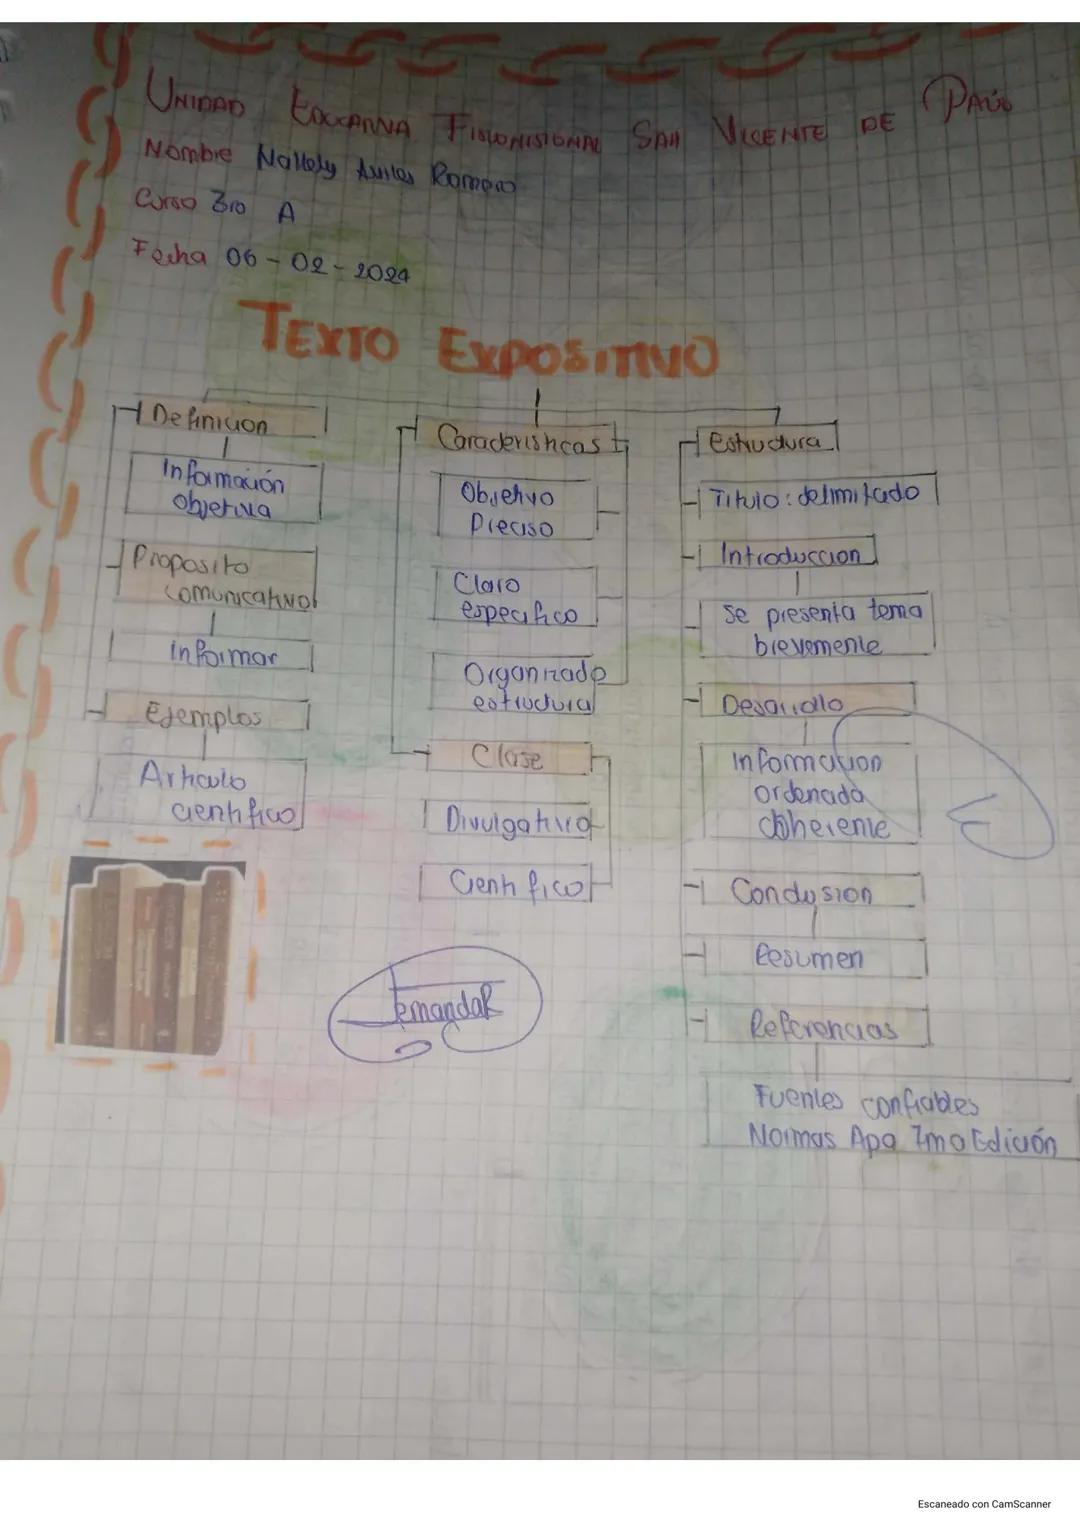 UNIDAD EDUCATIVA FISCOMISIONAL SAN VICENTE DE PAÚL
Nombre Nallely Aviles Romero
Curso 3ro A
Fecha 06-02-2024
TEXTO EXPOSITIVO
Definicion
Información
objetiva
Proposito
comunicativo
informar
Ejemplos
Articulo
cientifico
Caracteristicas
Objetivo
Preciso
Claro
especifico
Organizado
estructural
Clase
Divulgativo
Cientifico
Estructura
Titulo: delimitado
Introduccion
se presenta tema
brevemente
Desarrollo
Informacion
ordenada
coherente
Conclusion
Resumen
Referencias
Fuentes confiables
Normas Apa 7mo Edición
Escaneado con CamScanner